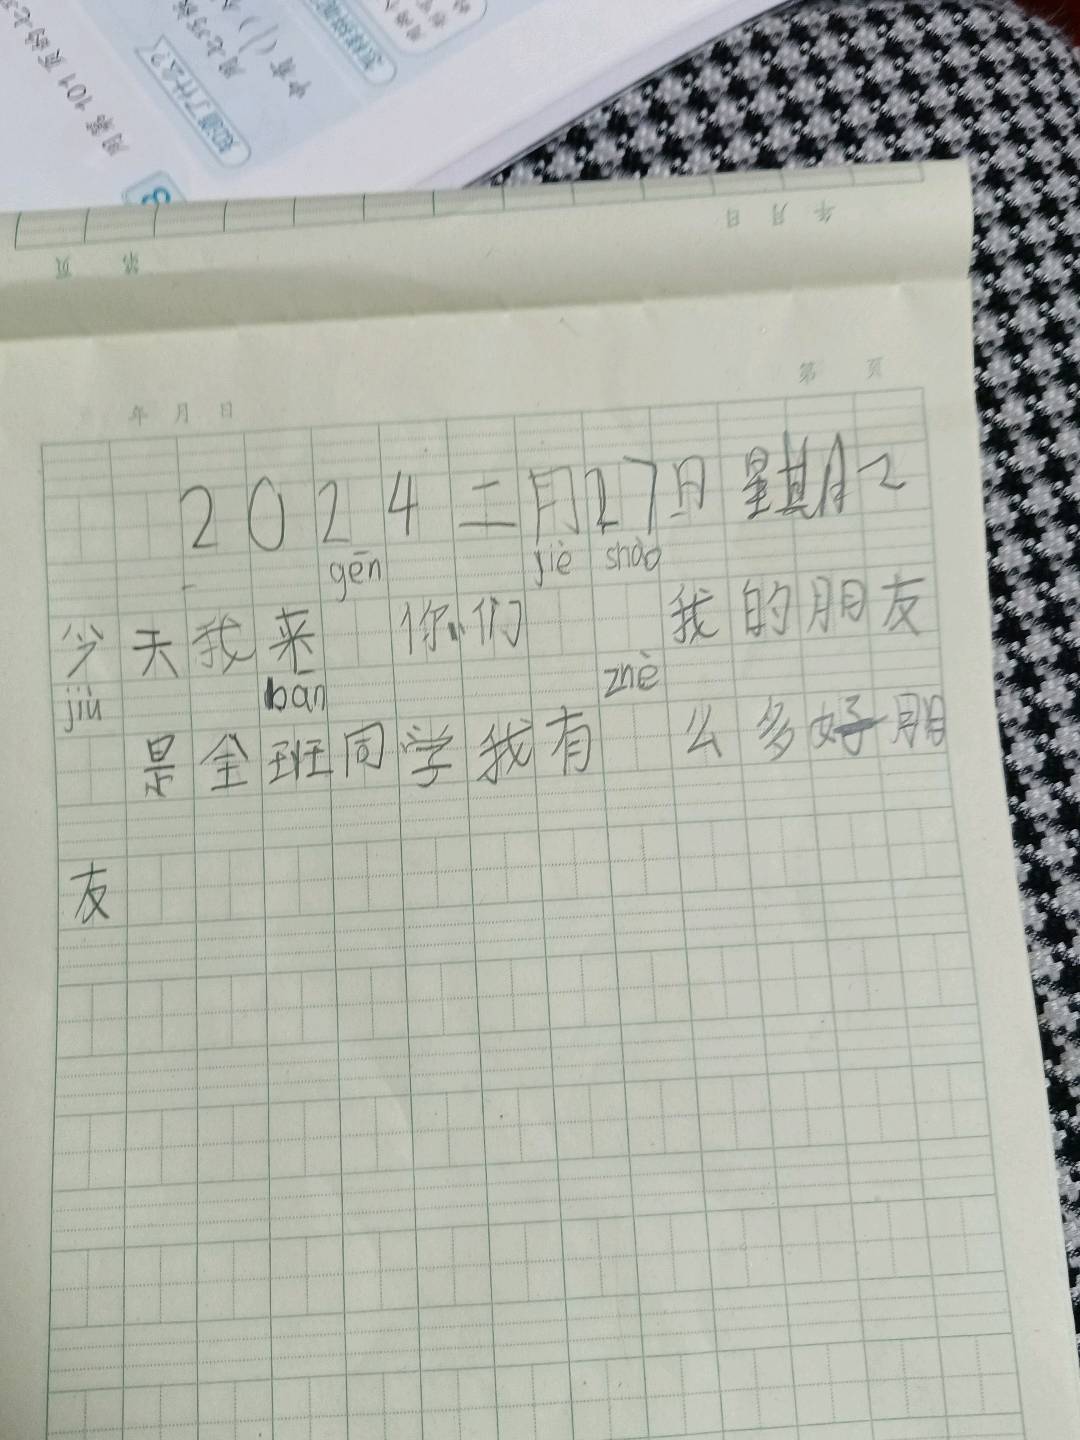 年 月 日
第 页
年 月 日
第 页
2024二月27日星期2
gēn jiè shào
今天我来 你们 我的朋友
jiù bān zhè
是全班同学我有 么多好朋
友